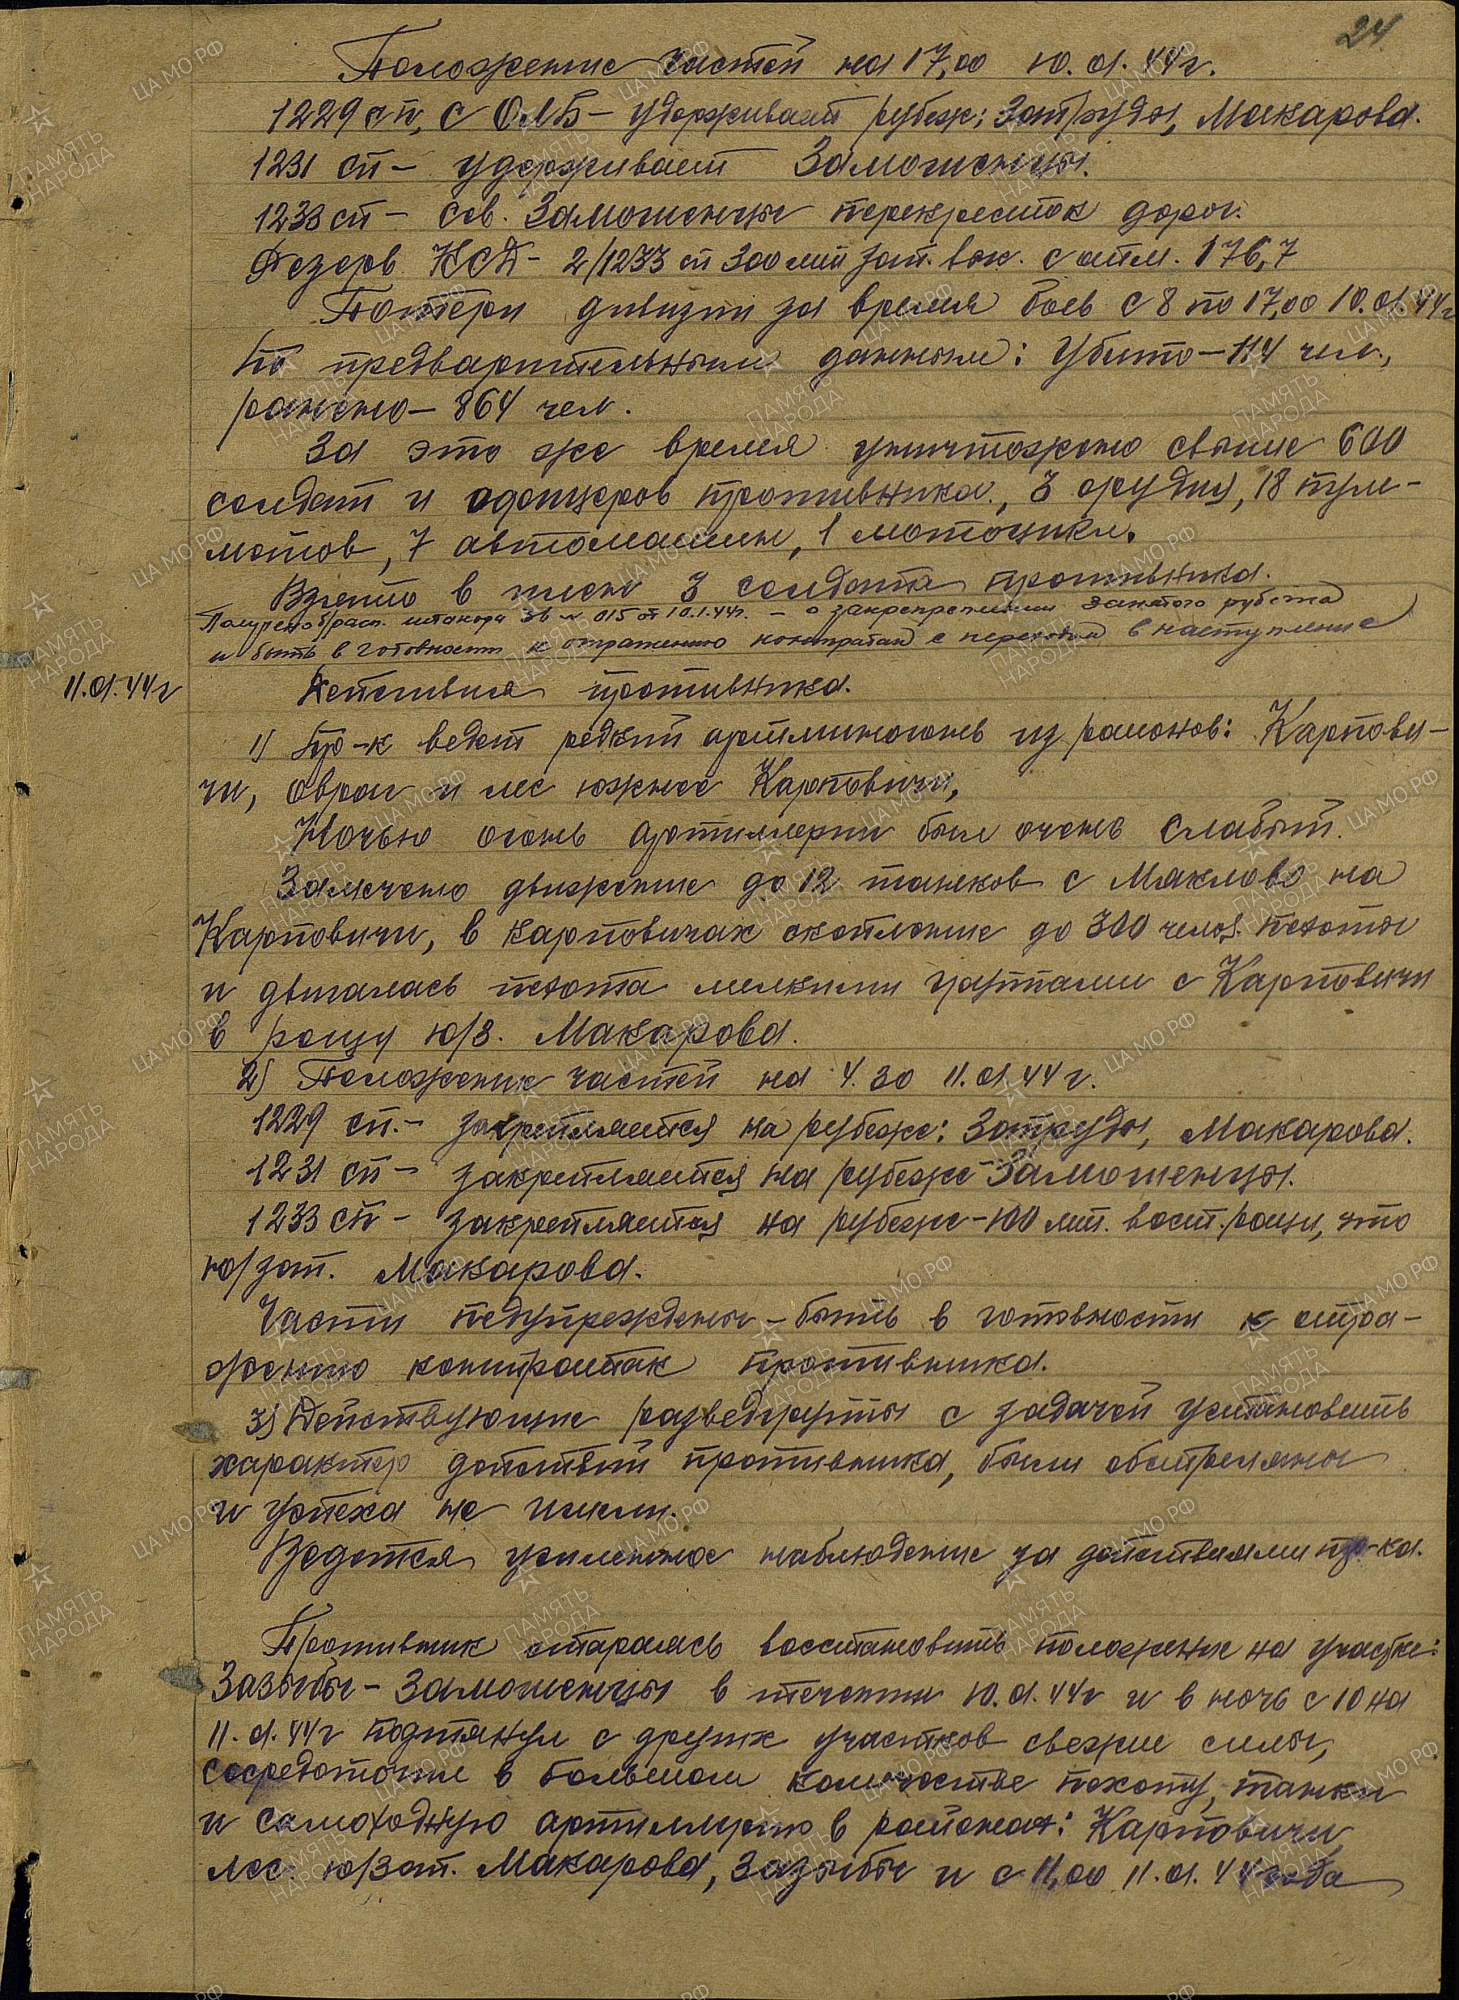 24
Положение частей на 17,00 10.01.44г.
1229 сп, с ОЛБ – удерживает рубеж: Затруды, Макарова.
1231 сп – удерживает Замошенцы.
1233 сп – сев. Замошенцы перекресток дорог.
Резерв КСД – 2/1233 сп 300 мт зап. выс. с отм. 176,7
Потери дивизии за время боев с 8 по 17,00 10.01.44г
по предварительным данным: Убито – 114 чел.,
ранено – 864 чел.
За это же время уничтожено свыше 600
солдат и офицеров противника, 3 орудия, 18 пуле-
метов, 7 автомашин, 1 мотоцикл.
Взято в плен 3 солдата противника.
Получено расп. штакора 36 № 015 от 10.1.44г. – о закреплении занятого рубежа
и быть в готовности к отражению контратак с переходом в наступление
11.01.44г
Действия противника.
1) Пр-к ведет редкий артминогонь из районов: Карпови-
чи, овраг и лес южнее Карповичи,
Ночью огонь артиллерии был очень слабый.
Замечено движение до 12 танков с Маклово на
Карповичи, в Карповичах скопление до 300 челов. пехоты
и двигалась пехота мелкими группами с Карповичи
в рощу ю/з. Макарова.
2) Положение частей на 4.30 11.01.44г.
1229 сп. – закрепляется на рубеже: Затруды, Макарова.
1231 сп – закрепляется на рубеже – Замошенцы.
1233 сп – закрепляется на рубеже – 100 мт. вост. рощи, что
ю/зап. Макарова.
Части предупреждены – быть в готовности к отра-
жению контратак противника.
3) Действующие разведгруппы с задачей установить
характер действий противника, были обстреляны
и успеха не имели.
Ведется усиленное наблюдение за действиями пр-ка.
Противник старалась восстановить положение на участке:
Зазыбы – Замошенцы в течении 10.01.44г и в ночь с 10 на
11.01.44г подтянул с других участков свежие силы,
сосредоточил в большом количестве пехоту, танки
и самоходную артиллерию в районах: Карповичи
лес ю/зап. Макарова, Зазыбы и с 11,00 11.01.44 года